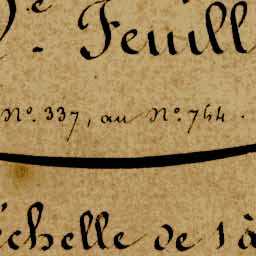 e. Feuill
N.º 337, au N.º 764.
échelle de 1 à